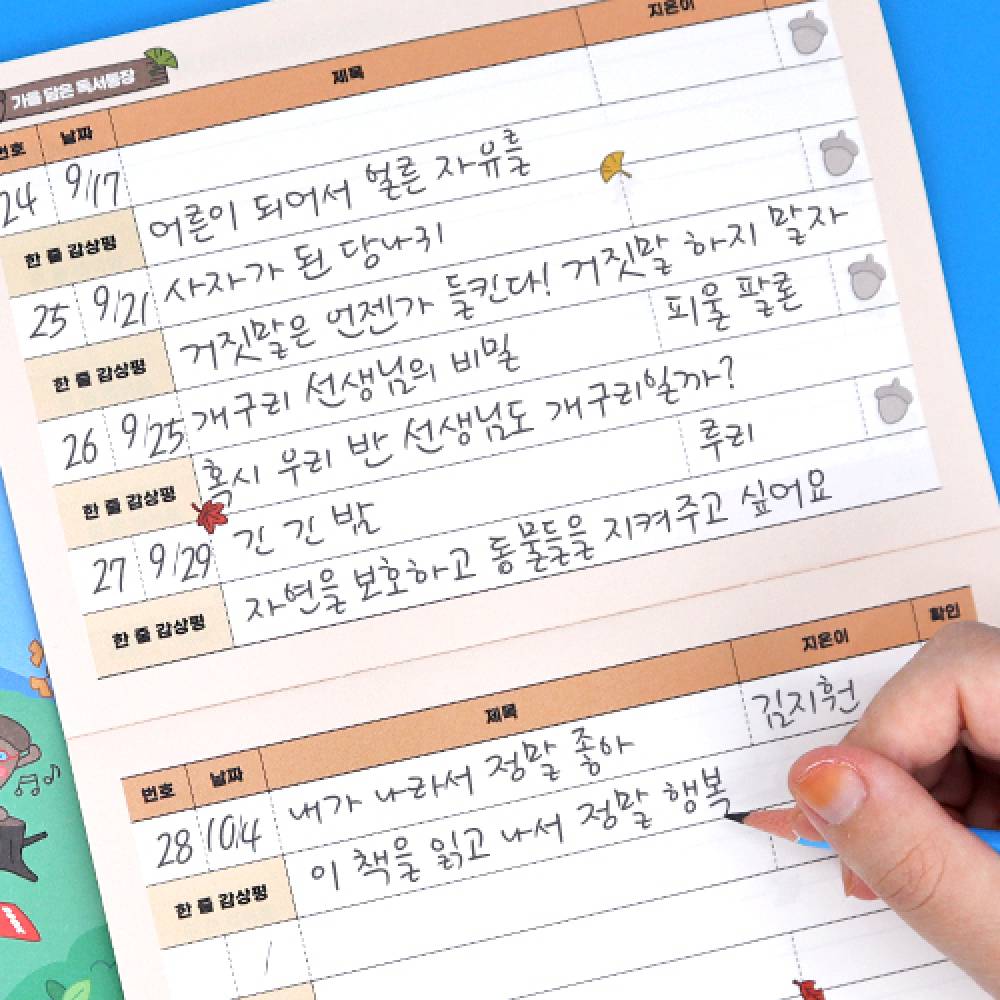 가을 담은 독서통장
번호 날짜 제목 지은이
24 9/17
한 줄 감상평 어른이 되어서 얼른 자유를
25 9/21 사자가 된 당나귀
한 줄 감상평 거짓말은 언젠가 들킨다! 거짓말 하지 말자
26 9/25 개구리 선생님의 비밀 피울 팔론
한 줄 감상평 혹시 우리 반 선생님도 개구리일까?
27 9/29 긴 긴 밤 루리
한 줄 감상평 자연을 보호하고 동물들을 지켜주고 싶어요
번호 날짜 제목 지은이 확인
28 10/4 내가 나라서 정말 좋아 김지훤
한 줄 감상평 이 책을 읽고 나서 정말 행복
/